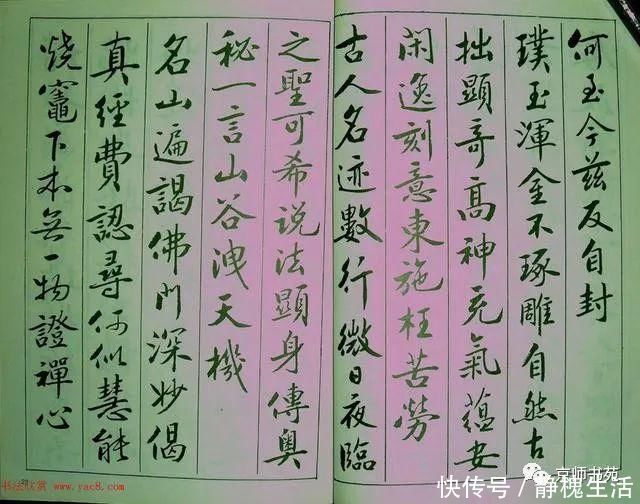 何至今兹反自封
璞玉渾金不琢雕自然古
拙顯奇高神充氣蕴安
闲逸刻意東施枉苦勞
古人名迹數行微日夜臨
之聖可希说法顯身傳奥
秘一言山谷洩天機
名山遍謁佛門深妙偈
真經費認尋何似慧能
燒竈下本無一物證禪心
书法欣赏
www.yac8.com
京师书苑
快传号／静槐生活